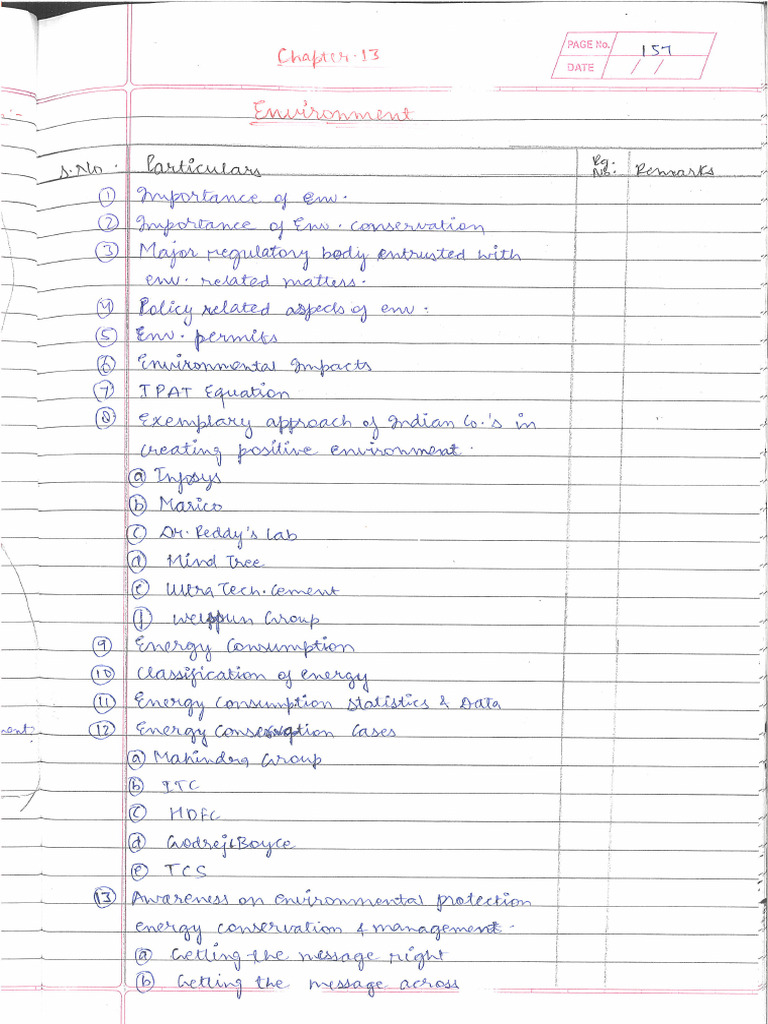 Chapter-13
PAGE No. 157
DATE / /
Environment
S.No. Particulars Pg. No. Remarks
① Importance of env.
② Importance of Env. conservation
③ Major regulatory body entrusted with
env. related matters.
④ Policy related aspects of env.
⑤ Env. permits
⑥ Environmental Impacts
⑦ IPAT Equation
⑧ Exemplary approach of Indian Co.'s in
creating positive environment.
ⓐ Infosys
ⓑ Marico
ⓒ Dr. Reddy's Lab
ⓓ Mind Tree
ⓔ Ultra Tech. Cement
ⓕ Group
⑨ Energy Consumption
⑩ Classification of energy
⑪ Energy Consumption Statistics & Data
ment. ⑫ Energy Conservation Cases
ⓐ Mahindra Group
ⓑ ITC
ⓒ HDFC
ⓓ Godrej & Boyce
ⓔ TCS
⑬ Awareness on environmental protection
energy conservation & management.
ⓐ Getting the message right
ⓑ Getting the message across